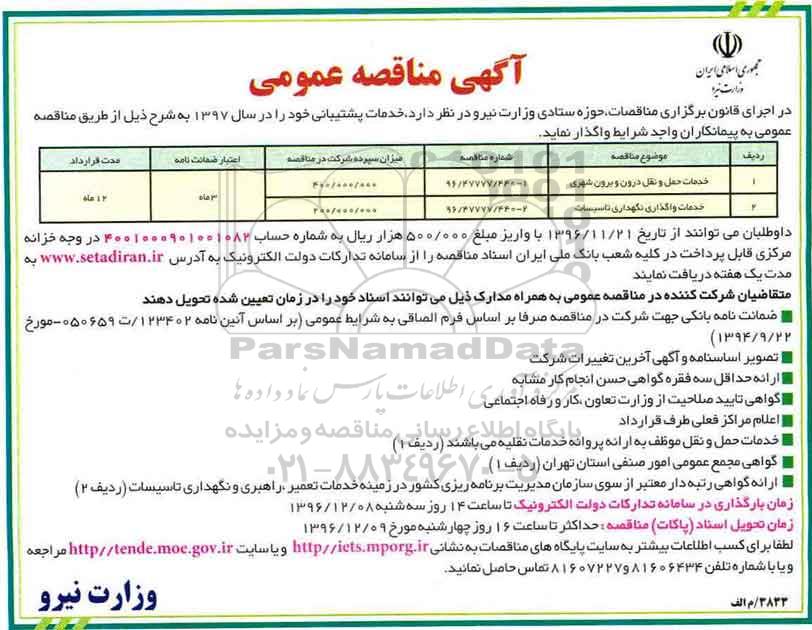 جمهوری اسلامی ایران
وزارت نیرو
آگهی مناقصه عمومی
در اجرای قانون برگزاری مناقصات،حوزه ستادی وزارت نیرو در نظر دارد،خدمات پشتیبانی خود را در سال ۱۳۹۷ به شرح ذیل از طریق مناقصه
عمومی به پیمانکاران واجد شرایط واگذار نماید.
ردیف موضوع مناقصه شماره مناقصه میزان سپرده شرکت در مناقصه اعتبار ضمانت نامه مدت قرارداد
۱ خدمات حمل و نقل درون و برون شهری ۹۶/۴۷۷۷۷/۴۴۰-۱ ۴۰۰/۰۰۰/۰۰۰ ۳ماه ۱۲ ماه
۲ خدمات واگذاری نگهداری تاسیسات ۹۶/۴۷۷۷۷/۴۴۰-۲ ۲۰۰/۰۰۰/۰۰۰
داوطلبان می توانند از تاریخ ۱۳۹۶/۱۱/۲۱ با واریز مبلغ ۵۰۰/۰۰۰ هزار ریال به شماره حساب ۴۰۰۱۰۰۰۹۰۱۰۰۱۰۸۲ در وجه خزانه
مرکزی قابل پرداخت در کلیه شعب بانک ملی ایران اسناد مناقصه را از سامانه تدارکات دولت الکترونیک به آدرس www.setadiran.ir به
مدت یک هفته دریافت نمایند
متقاضیان شرکت کننده در مناقصه عمومی به همراه مدارک ذیل می توانند اسناد خود را در زمان تعیین شده تحویل دهند
ضمانت نامه بانکی جهت شرکت در مناقصه صرفا بر اساس فرم الصاقی به شرایط عمومی (بر اساس آئین نامه ۱۲۳۴۰۲/ت ۵۰۶۵۹-مورخ
۱۳۹۴/۹/۲۲)
تصویر اساسنامه و آگهی آخرین تغییرات شرکت
ارائه حداقل سه فقره گواهی حسن انجام کار مشابه
گواهی تایید صلاحیت از وزارت تعاون ،کار و رفاه اجتماعی
اعلام مراکز فعلی طرف قرارداد
خدمات حمل و نقل موظف به ارائه پروانه خدمات نقلیه می باشند (ردیف ۱)
گواهی مجمع عمومی امور صنفی استان تهران (ردیف ۱)
ارائه گواهی رتبه دار معتبر از سوی سازمان مدیریت برنامه ریزی کشور در زمینه خدمات تعمیر ،راهبری و نگهداری تاسیسات (ردیف ۲)
زمان بارگذاری در سامانه تدارکات دولت الکترونیک تا ساعت ۱۴ روز سه شنبه ۱۳۹۶/۱۲/۰۸
زمان تحویل اسناد (پاکات) مناقصه : حداکثر تا ساعت ۱۶ روز چهارشنبه مورخ ۱۳۹۶/۱۲/۰۹
لطفا برای کسب اطلاعات بیشتر به سایت پایگاه های مناقصات به نشانی http//iets.mporg.ir و یا سایت http//tende.moc.gov.ir مراجعه
و یا با شماره تلفن ۸۱۶۰۶۴۳۴ و ۸۱۶۰۷۲۲۷ تماس حاصل نمائید.
۳۸۳۳/م الف
وزارت نیرو
ParsNamadData
مرکز فرآوری اطلاعات پارس نماد داده ها
پایگاه اطلاع رسانی مناقصه و مزایده
۰۲۱-۸۸۳۴۹۶۷۰-۵